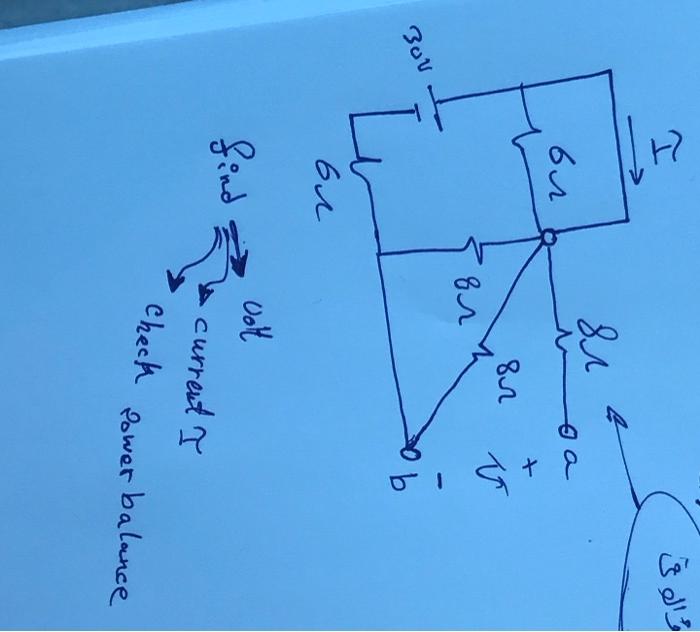 I
6Ω
8Ω
30V
8Ω
8Ω
a
+
v
-
b
6Ω
find
Volt
current I
check power balance